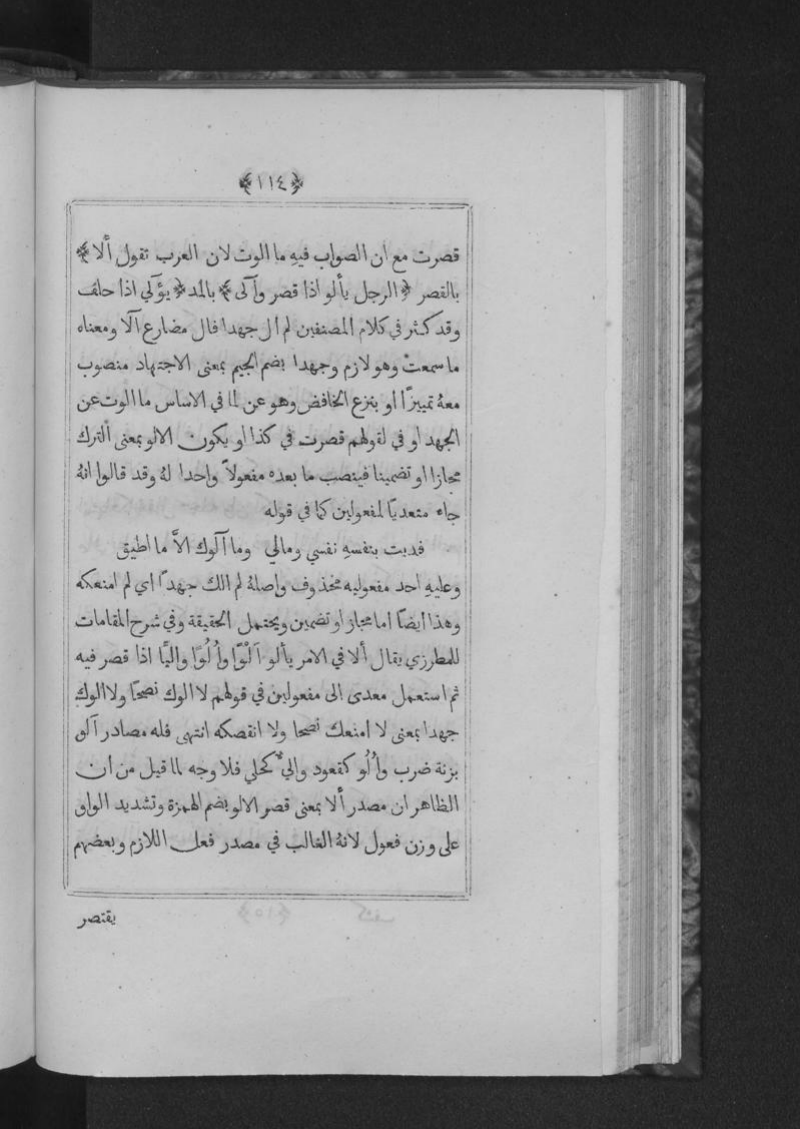 ﴿١١٤﴾
قصرت مع ان الصواب فيهِ ما الوت لان العرب تقول ألا﴾
بالقصر ﴿الرجل يألو اذا قصر وآلى﴾ بالمد ﴿يؤلي اذا حلف
وقد كثر في كلام المصنفين لم ال جهدا فال مضارع ألا ومعناه
ما سمعتْ وهو لازم وجهدا بضم الجيم بمعنى الاجتهاد منصوب
معهُ تمييزًا او بنزع الخافض وهو عن لما في الاساس ما الوت عن
الجهد او في لقولهم قصرت في كذا او يكون الالو بمعنى الترك
مجازا او تضمينا فينصب ما بعده مفعولاً واحدا لهُ وقد قالوا انهُ
جاء متعديًا لمفعولين كما في قوله
فديت بنفسهِ نفسي ومالي وما آلوك الاَّ ما اطيق
وعليهِ احد مفعوليه محذوف واصلهُ لم الك جهدًا اي لم امنعكه
وهذا ايضًا اما مجاز او تضمين ويحتمل الحقيقة وفي شرح المقامات
للمطرزي يقال ألا في الامر يألو اَلْوًا وأُلُوًا واليًّا اذا قصر فيه
ثم استعمل معدى الى مفعولين في قولهم لا الوك نصحًا ولا الوك
جهدا بمعنى لا امنعك نصحا ولا انقصكه انتهى فله مصادر آلو
بزنة ضرب وأُلُو كقعود واليٌّ كحلي فلا وجه لما قيل من أن
الظاهر ان مصدر ألا بمعنى قصر الالو بضم الهمزة وتشديد الواو
على وزن فعول لانهُ الغالب في مصدر فعل اللازم وبعضهم
يقتصر